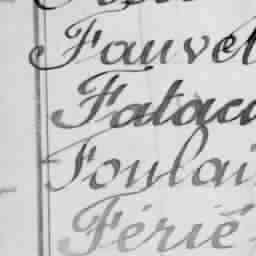 Fauvet
Fataco
Foulai
Férié